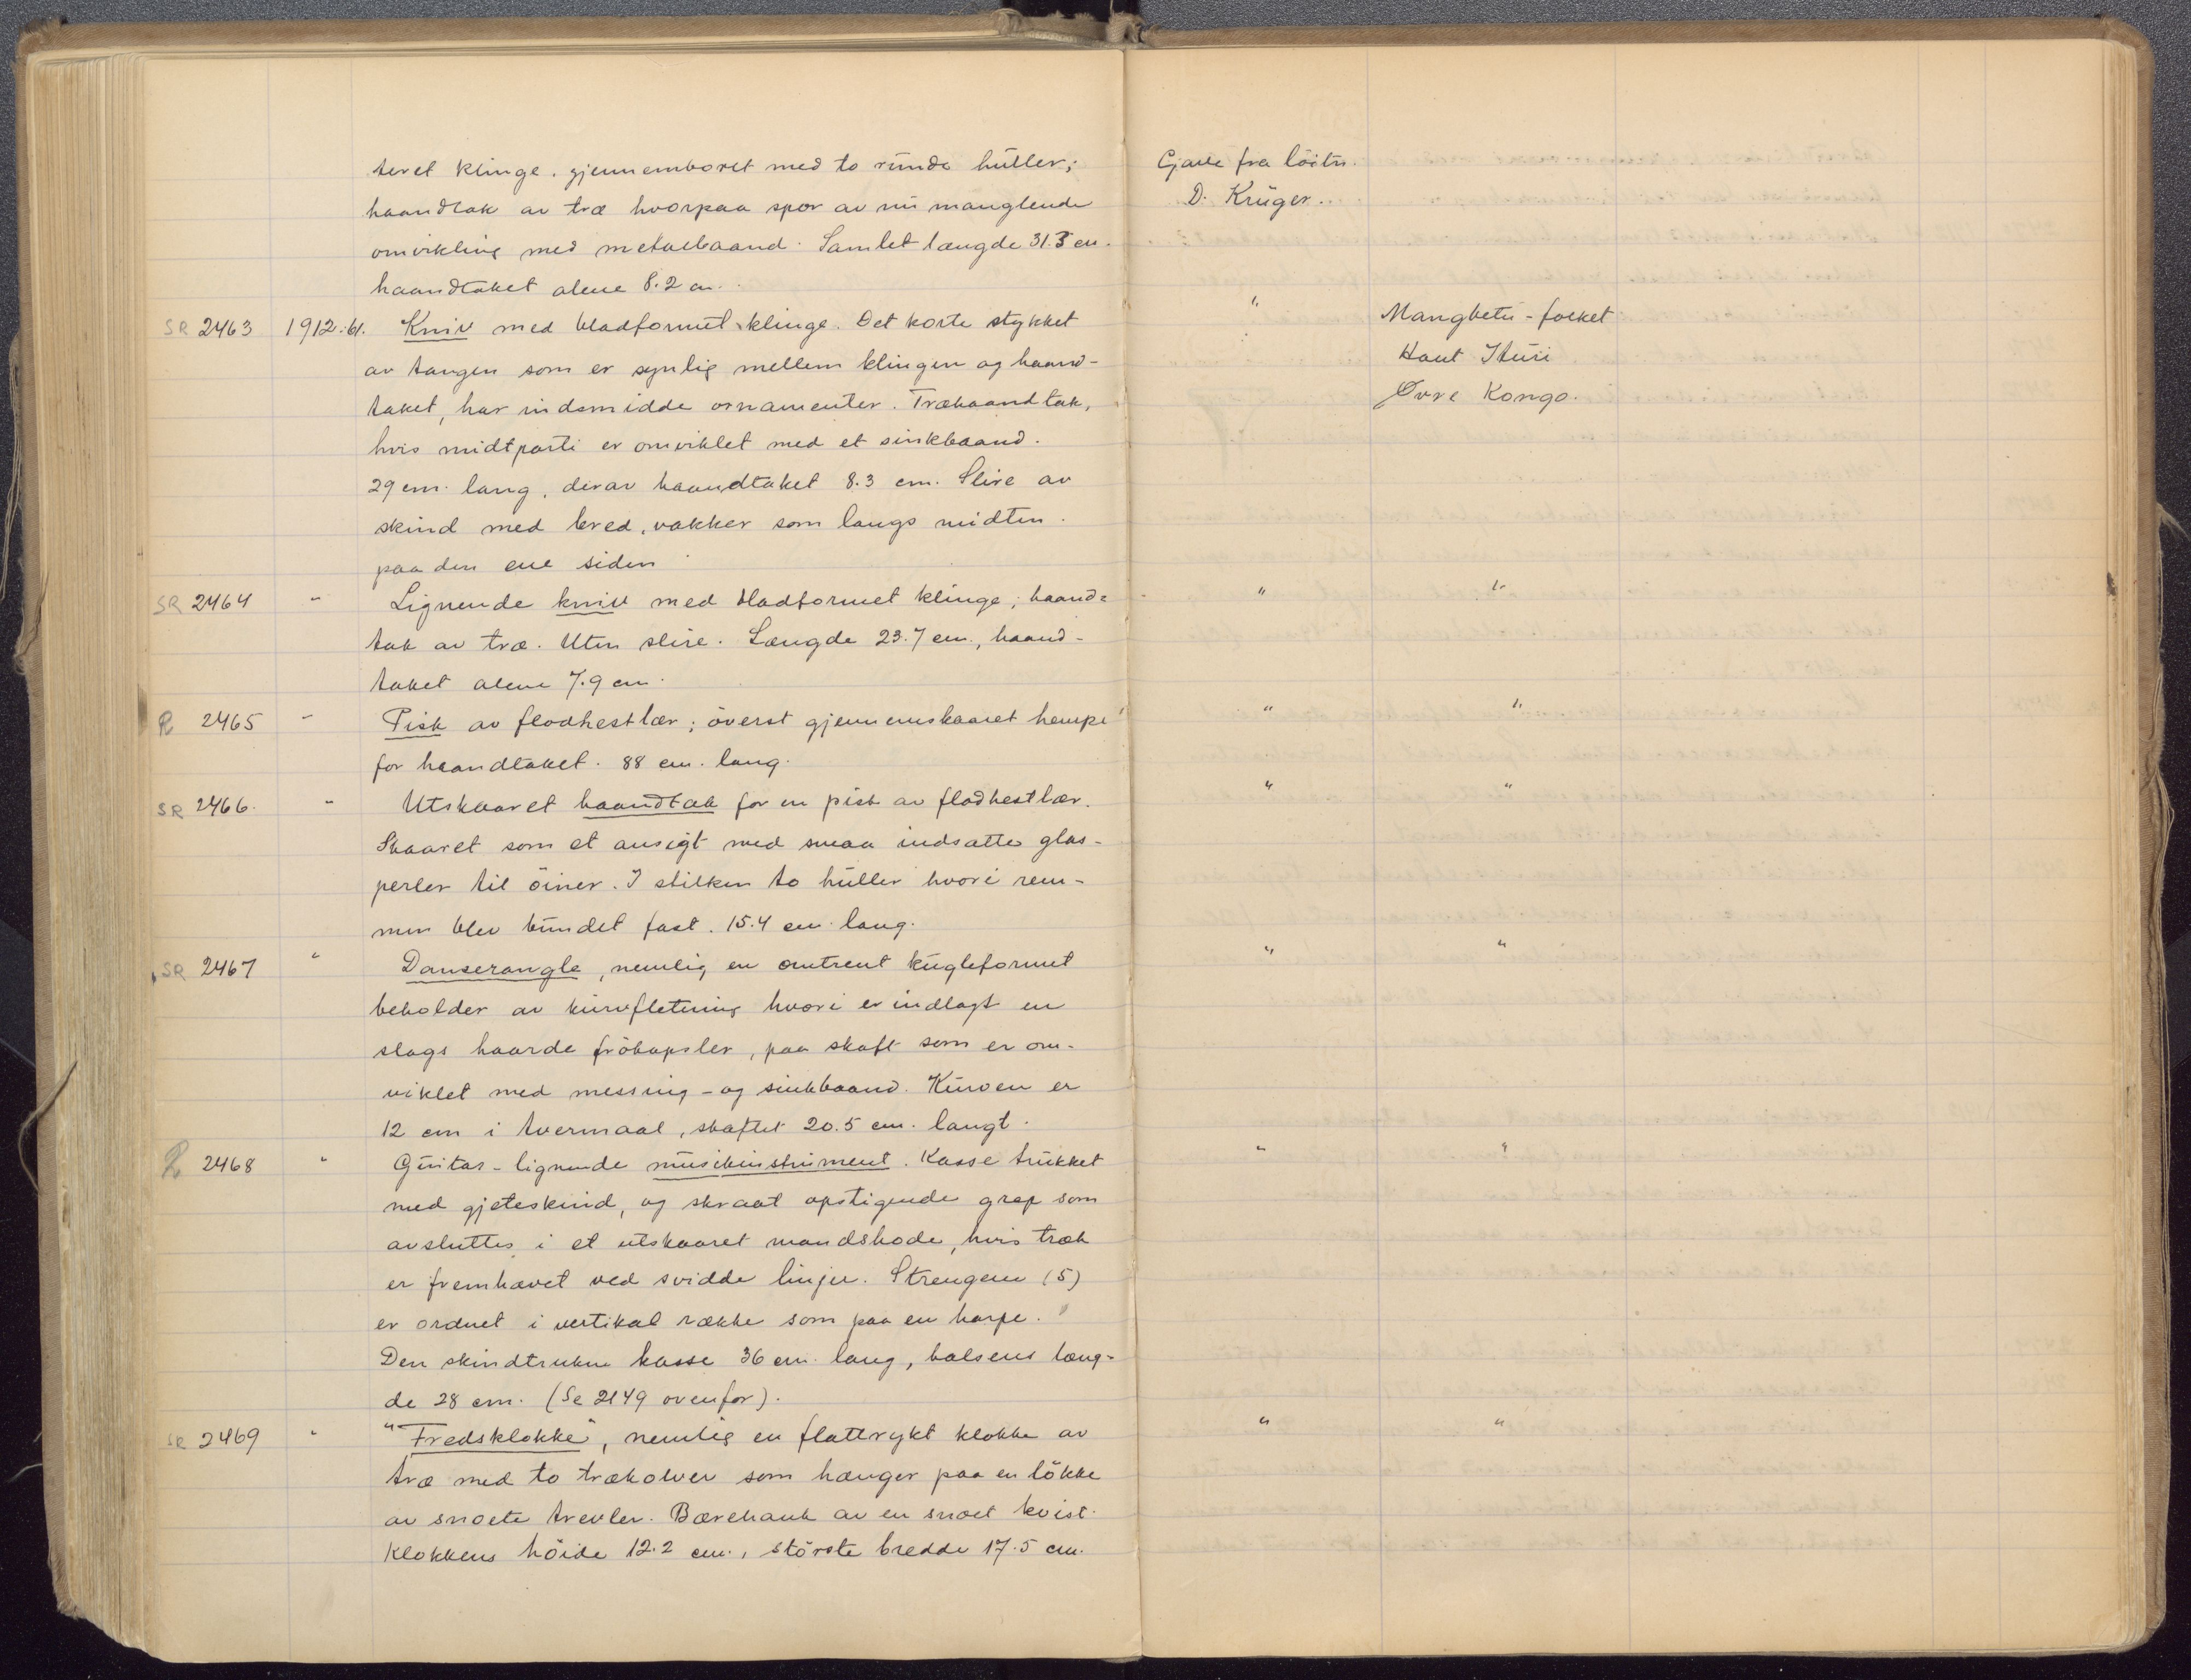 tevet klinge, gjennemboret med to runde huller;
haandtak av træ hvorpaa spor av nu manglende
omvikling med metalbaand. Samlet længde 31.5 cm.
haandtaket alene 8.2 cm.
Gave fra löitn.
D. Krüger.
SR 2463 1912:61. Kniv med bladformet klinge. Det korte stykket
av tangen som er synlig mellem klingen og haand-
taket, har indsmidde ornamenter. Træhaandtak,
hvis midtparti er omviklet med et sinkbaand.
29 cm. lang, derav haandtaket 8.3 cm. Slire av
skind med bred, vakker som langs midten
paa den ene siden
" Mangbetu-folket
Haut Ituri
Øvre Kongo.
SR 2464 " Lignende kniv med bladformet klinge; haand-
tak av træ. Uten slire. Længde 23.7 cm., haand-
taket alene 7.9 cm.
" "
R 2465 " Pisk av flodhestlær; överst gjennemskaaret hempe
for haandtaket. 88 cm. lang.
" "
SR 2466. " Utskaaret haandtak for en pisk av flodhestlær.
Skaaret som et ansigt med smaa indsatte glas-
perler til öiner. I stilken to huller hvori rem-
men blev bundet fast. 15.4 cm lang.
" "
SR 2467 " Danserangle, nemlig en omtrent kugleformet
beholder av kurvfletning hvori er indlagt en
slags haarde frökapsler, paa skaft som er om-
viklet med messing- og sinkbaand. Kurven er
12 cm i tvermaal, skaftet 20.5 cm. langt.
" "
R 2468 " Guitar-lignende musikinstrument. Kasse trukket
med gjeteskind, og skraat opstigende grep som
avsluttes i et utskaaret mandshode, hvis træk
er fremhævet ved svidde linjer. Strengene (5)
er ordnet i vertikal række som paa en harpe.
Den skindtrukne kasse 36 cm. lang, halsens læng-
de 28 cm. (Se 2149 ovenfor).
" "
SR 2469 " "Fredsklokke", nemlig en flattrykt klokke av
træ med to trækolver som hænger paa en lökke
av snoete trevler. Bærehank av en snoet kvist.
Klokkens höide 12.2 cm., störste bredde 17.5 cm.
" "